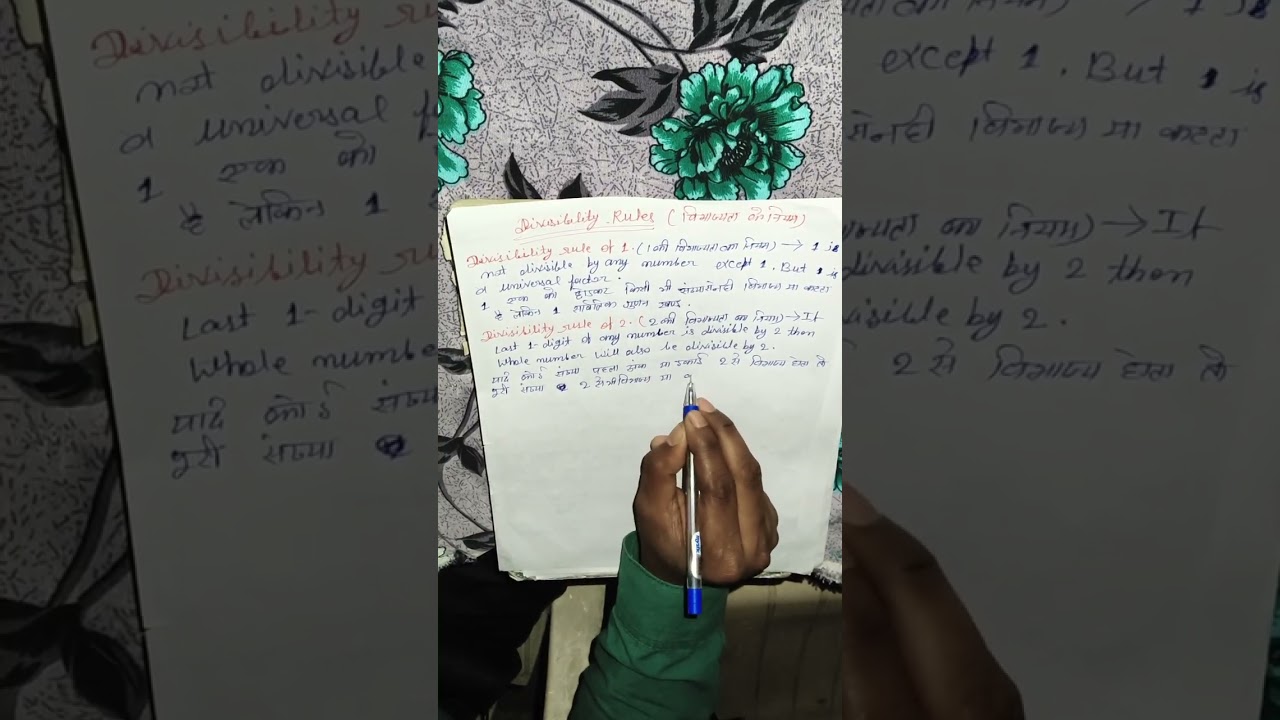 Divisibility Rules (विभाज्यता के नियम)
Divisibility rule of 1. (1 की विभाज्यता का नियम) → 1 is
not divisible by any number except 1. But 1 is
a universal factor.
1 एक को छोड़कर किसी भी संख्या से नही विभाज्य या कटता
है लेकिन 1 गुणन खण्ड.
Divisibility rule of 2. (2 की विभाज्यता का नियम) → If
Last 1-digit of any number is divisible by 2 then
whole number will also be divisible by 2.
यदि कोई संख्या पहला अंक या इकाई 2 से विभाज्य होता तो
पूरी संख्या 2 से भी विभाज्य या